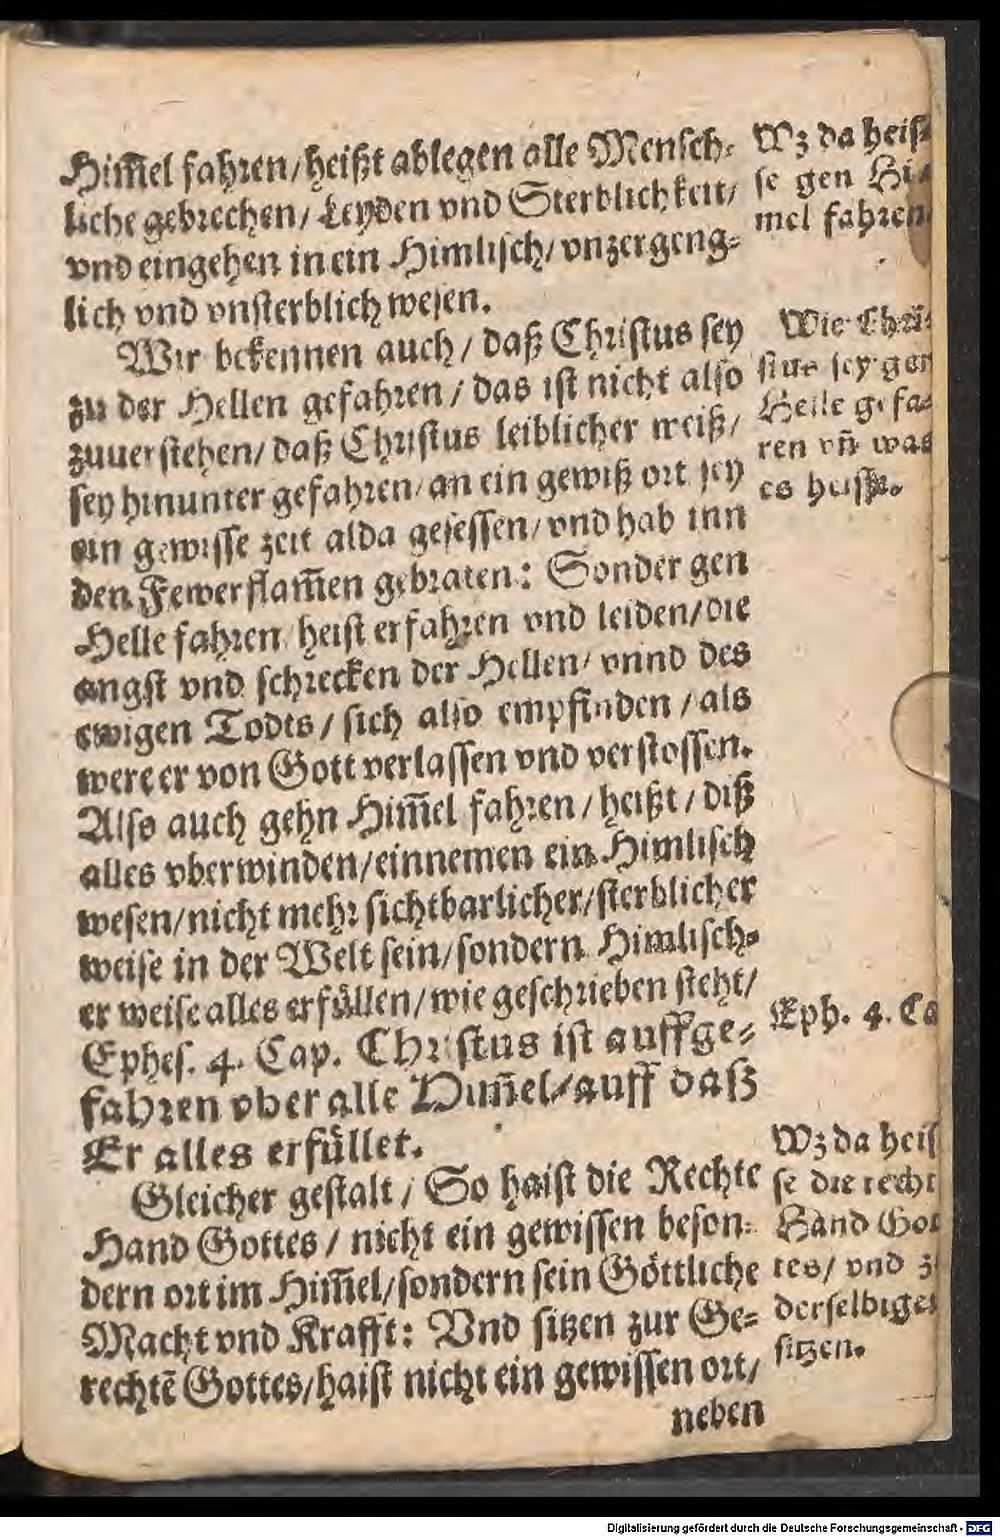 Him̃el fahren/heißt ablegen alle Mensch-
liche gebrechen/ Leyden vnd Sterblichkeit/
vnd eingehen in ein Himlisch/ vnzergeng-
lich vnd vnsterblich wesen.
Wir bekennen auch/ daß Christus sey
zu der Hellen gefahren/ das ist nicht also
zuuerstehen/ daß Christus leiblicher weiß/
sey hinunter gefahren/ an ein gewiß ort sey
ein gewisse zeit alda gesessen/ vnd hab inn
den Fewerflam̃en gebraten: Sonder gen
Helle fahren/ heist erfahren vnd leiden/ die
angst vnd schrecken der Hellen/ vnnd des
ewigen Todts/ sich also empfinden/ als
were er von Gott verlassen vnd verstossen.
Also auch gehn Him̃el fahren/ heißt/ diß
alles vberwinden/einnemen ein Himlisch
wesen/nicht mehr sichtbarlicher/sterblicher
weise in der Welt sein/sondern Himlisch-
er weise alles erfüllen/wie geschrieben steht/
Ephes. 4. Cap. Christus ist auffge-
fahren vber alle Him̃el/auff daß
Er alles erfüllet.
Gleicher gestalt/ So haist die Rechte
Hand Gottes/ nicht ein gewissen beson-
dern ort im Him̃el/sondern sein Göttliche
Macht vnd Krafft: Vnd sitzen zur Ge-
rechtẽ Gottes/haist nicht ein gewissen ort/
neben
Wz da heis-
se gen Hi-
mel fahren.
Wie Chri-
stus sey gen
Helle gefa-
ren vñ was
es heisse.
Eph. 4. Ca
Wz da heis
se die recht
Hand Got
tes/ vnd z
derselbigen
sitzen.
Digitalisierung gefördert durch die Deutsche Forschungsgemeinschaft - DFG